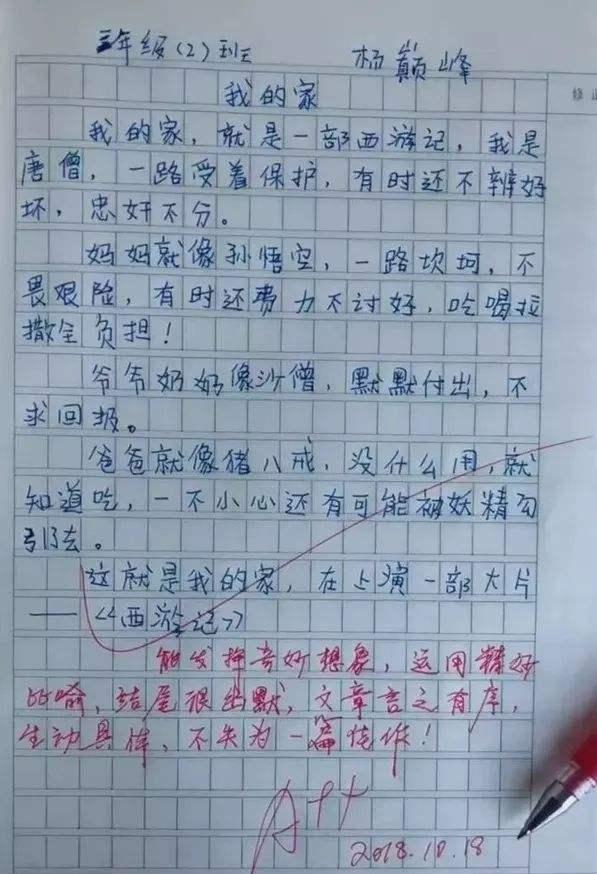 三年级(2)班 杨巅峰
修正
我的家
我的家，就是一部西游记，我是
唐僧，一路受着保护，有时还不辨好
坏，忠奸不分。
妈妈就像孙悟空，一路坎坷，不
畏艰险，有时还费力不讨好，吃喝拉
撒全负担！
爷爷奶奶像沙僧，默默付出，不
求回报。
爸爸就像猪八戒，没什么用，就
知道吃，一不小心还有可能被妖精勾
引去。
这就是我的家，在上演一部大片
——《西游记》
能发挥奇妙想象，运用精妙
比喻，结尾很幽默，文章言之有序，
生动具体，不失为一篇佳作！
A++
2018.10.18